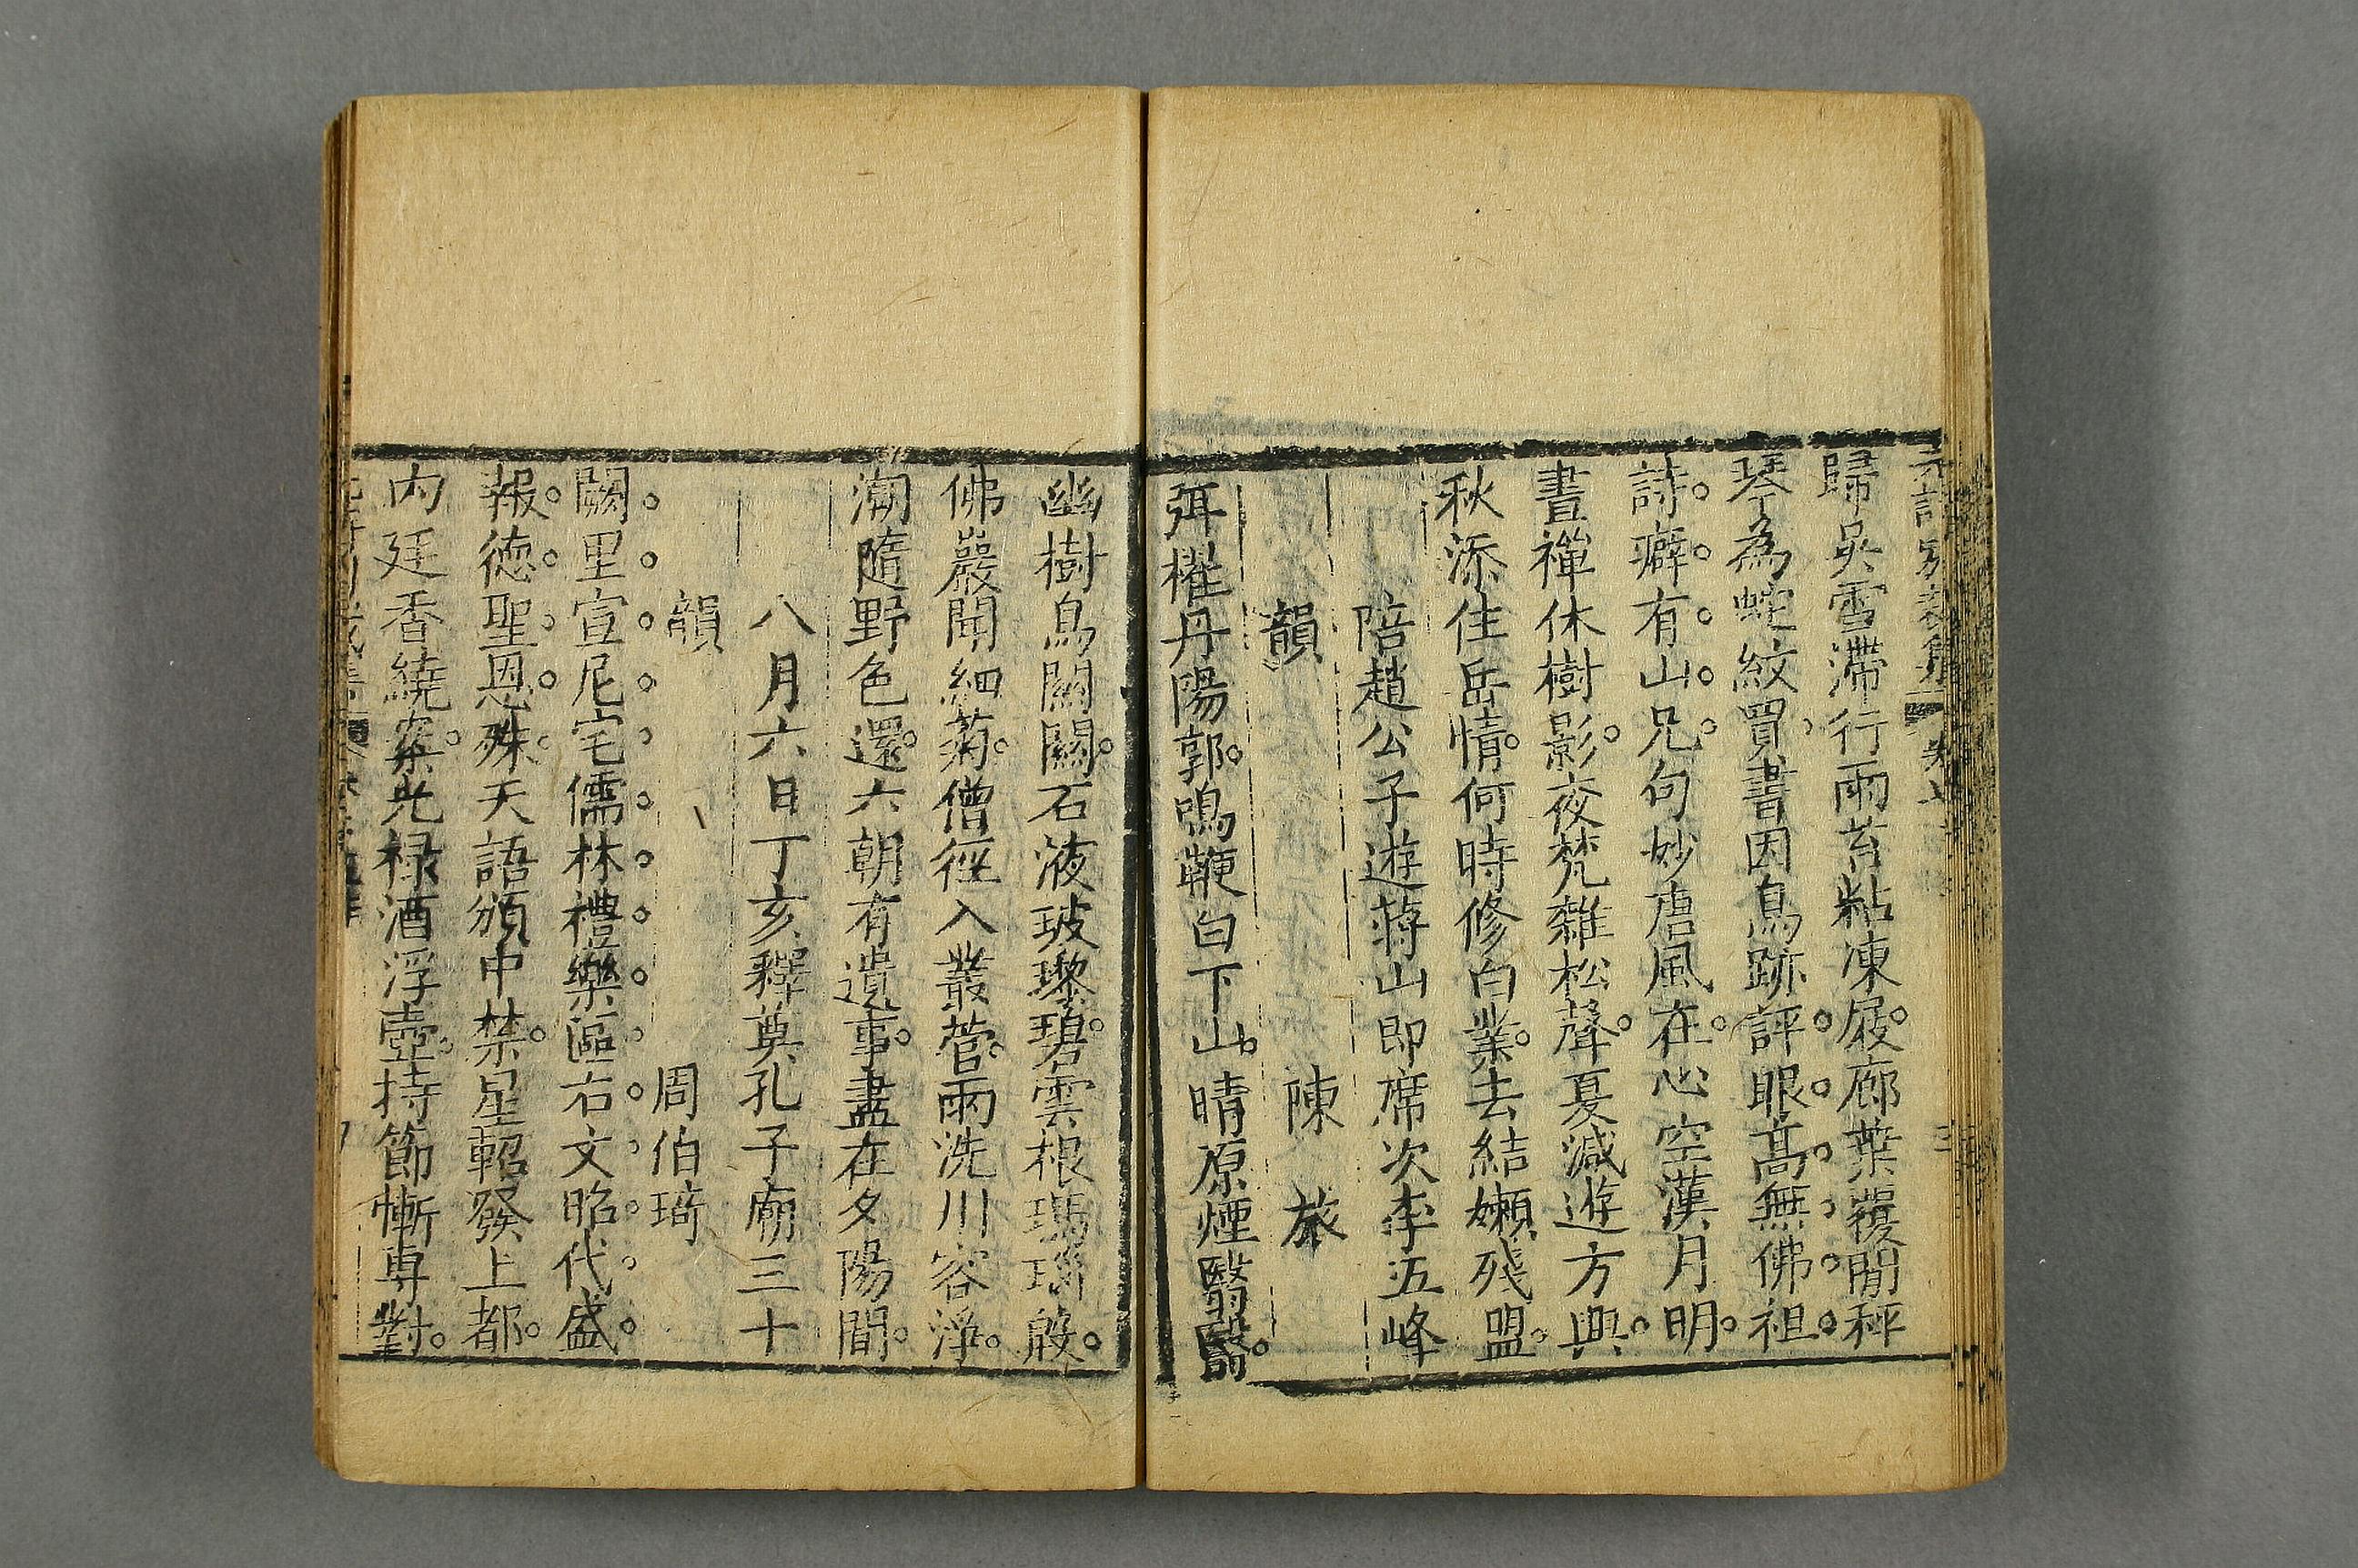 歸吳雪滯行雨苔粘凍屐廊葉覆閒秤
琴為蛇紋買書因鳥跡評眼高無佛祖
詩癖有山兄句妙唐風在心空漢月明
晝禪休樹影夜梵雜松聲夏減遊方興
秋添住岳情何時修白業去結嬾殘盟
陪趙公子遊蔣山即席次李五峰
韻 陳旅
弭櫂丹陽郭鳴鞭白下山晴原煙翳翳
幽樹鳥關關石液玻瓈碧雲根瑪瑙殷
佛巖聞細菊僧徑入叢菅雨洗川容淨
潮隨野色還六朝有遺事盡在夕陽間
八月六日丁亥釋奠孔子廟三十
韻 周伯琦
闕里宣尼宅儒林禮樂區右文昭代盛
報德聖恩殊天語頒中禁星軺發上都
內廷香繞案光祿酒浮壺持節慚專對